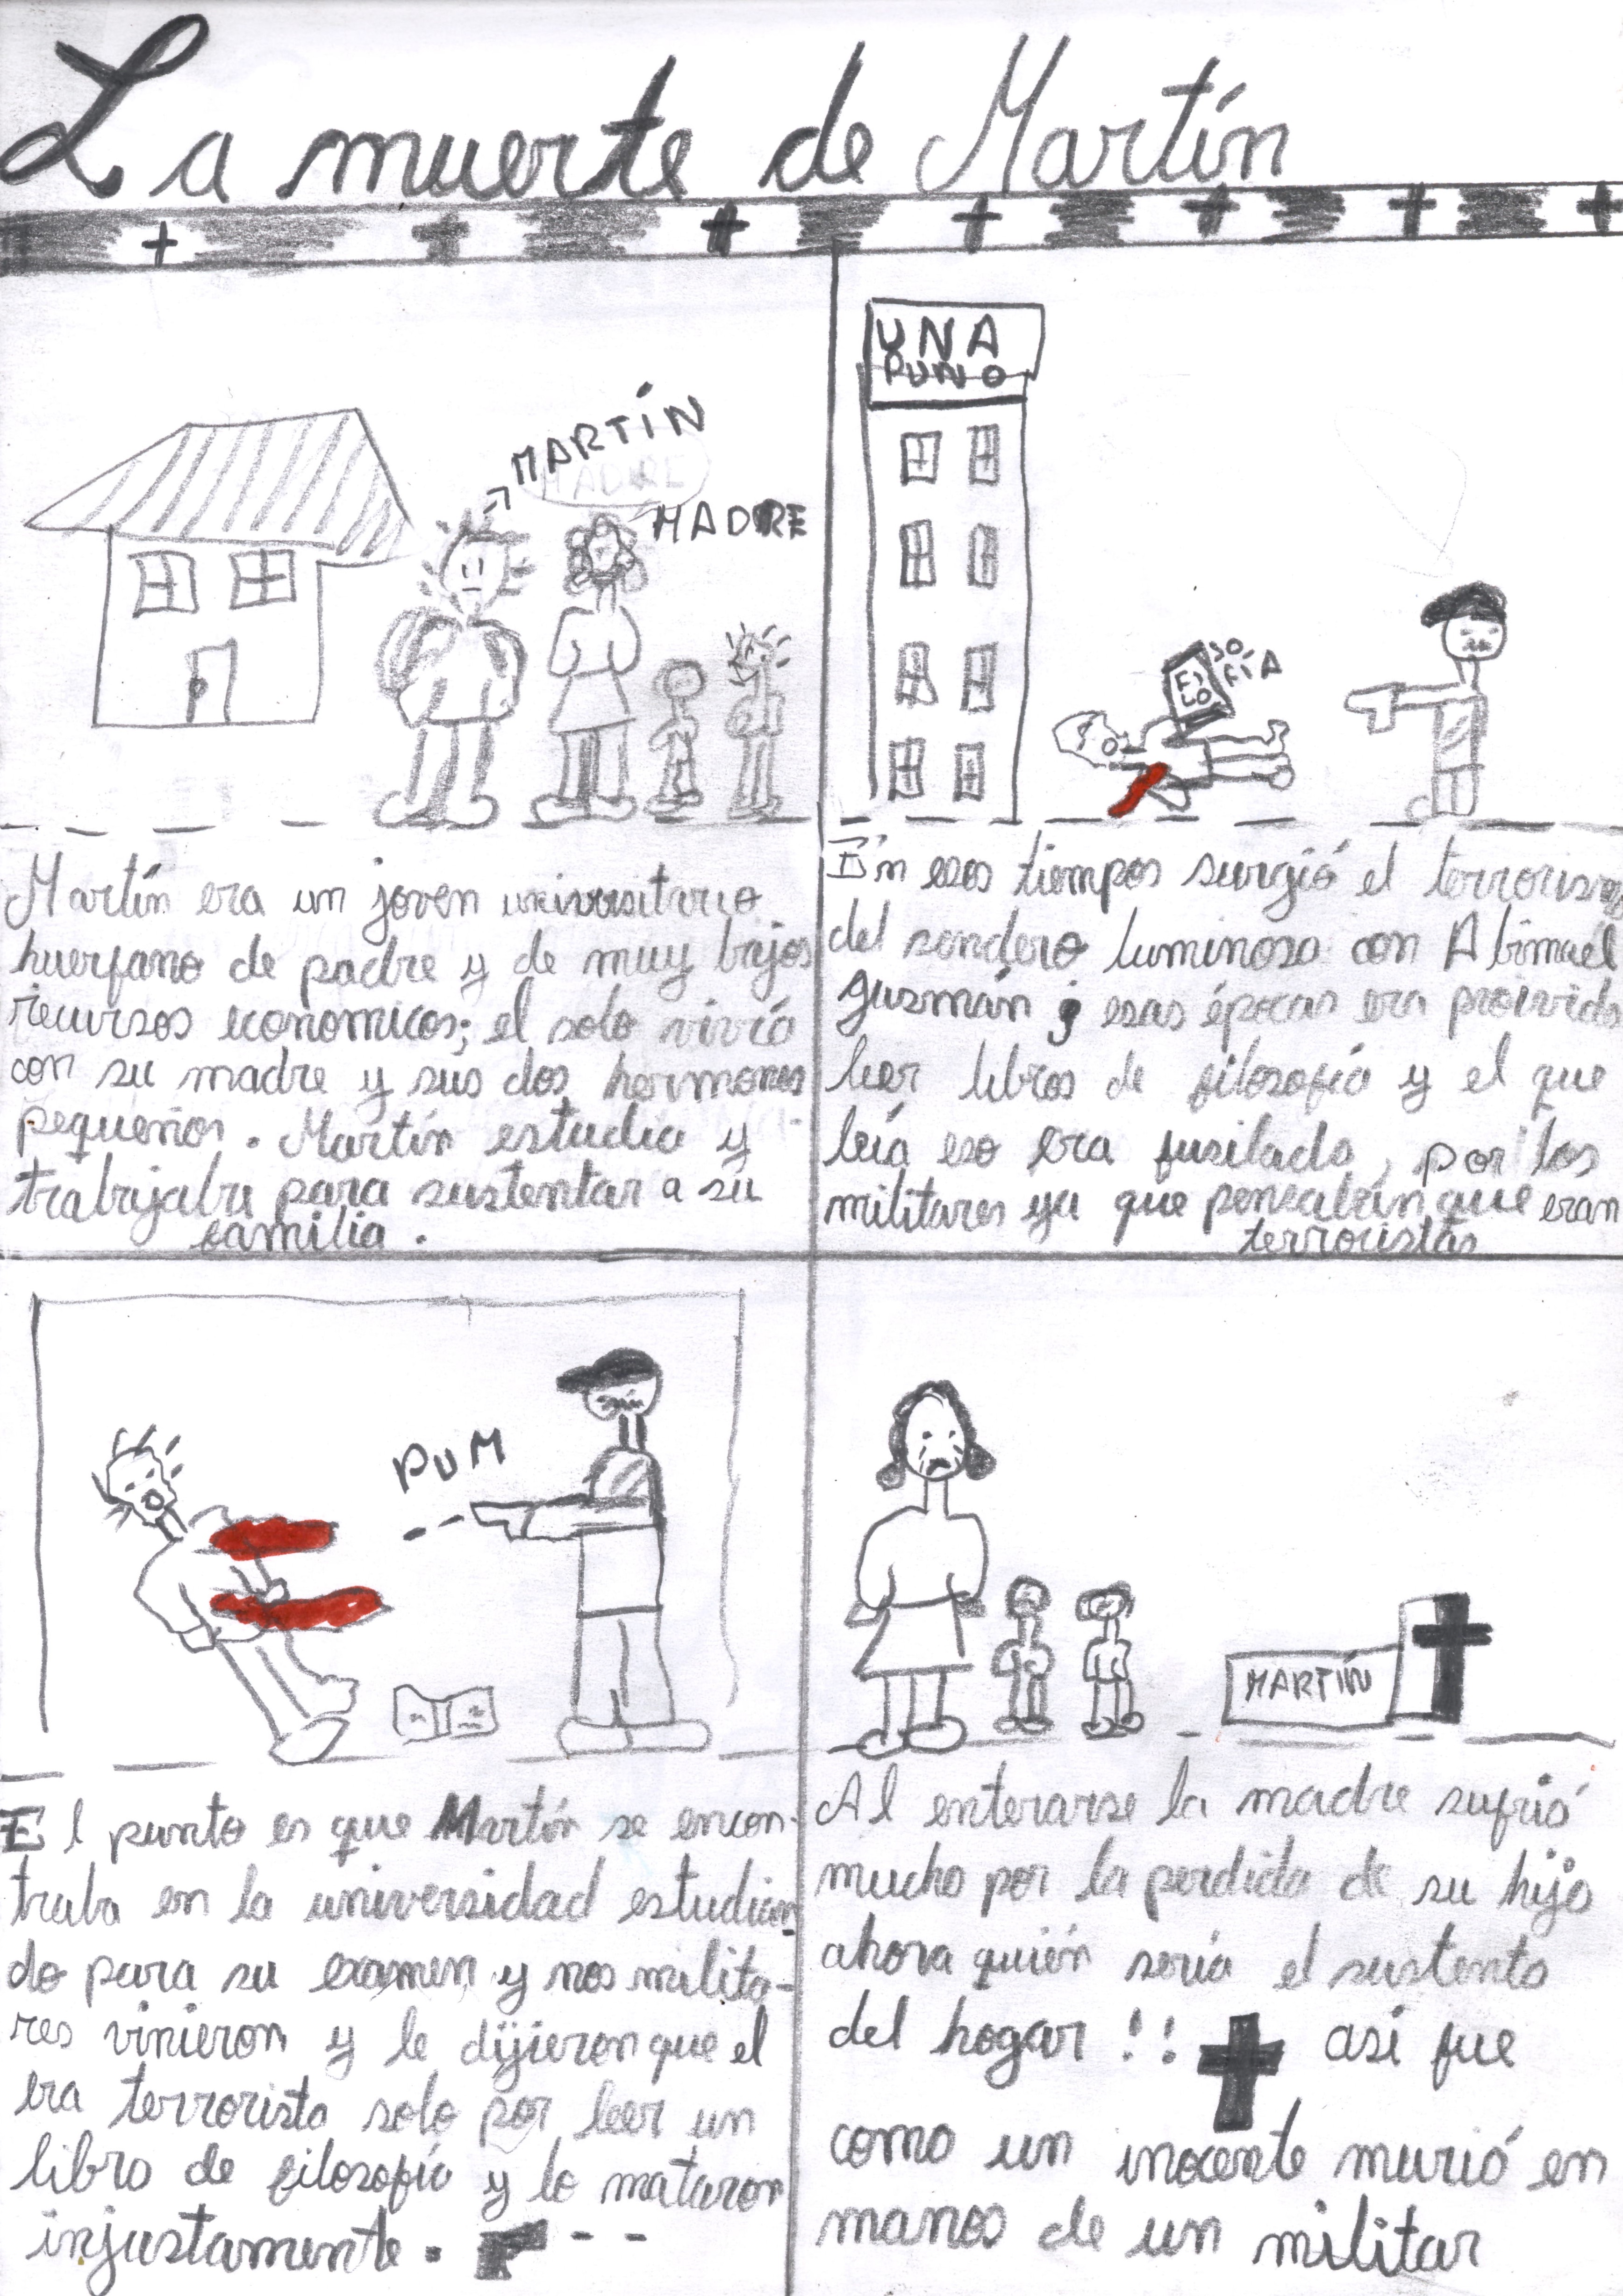 La muerte de Martín
MARTÍN
MADRE
MADRE
Martín era un joven universitario
huerfano de padre y de muy bajos
recursos economicos; el solo vivía
con su madre y sus dos hermanos
pequeños. Martín estudia y
trabajaba para sustentar a su
familia.
UNA
PUNO
FI
LO
SO
FÍA
En esos tiempos surgió el terrorismo
del sendero luminoso con Abimael
guzmán ; esas épocas era proivido
leer libros de filosofía y el que
leía eso era fusilado, por los
militares ya que pensaban que eran
terroristas
PUM
El punto es que Martín se encon-
traba en la universidad estudian
do para su examen y nos milita-
res vinieron y le dijieron que el
era terrorista solo por leer un
libro de filosofía y lo mataron
injustamente.
MARTIN
Al enterarse la madre sufrió
mucho por la perdida de su hijo
ahora quién sería el sustento
del hogar !! asi fue
como un inocente murió en
manos de un militar